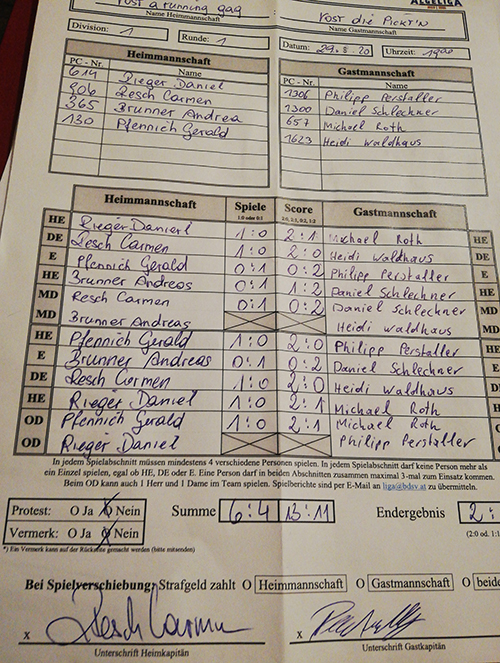 Post a running gag
Name Heimmannschaft
Post die Pickt'n
Name Gastmannschaft
Division: 1 Runde: 1 Datum: 29.8.20 Uhrzeit: 19⁰⁰
Heimmannschaft
PC - Nr. Name
614 Rieger Daniel
906 Resch Carmen
365 Brunner Andrea
130 Pfennich Gerald
Gastmannschaft
PC - Nr. Name
1306 Philipp Perstaller
1300 Daniel Schlechner
657 Michael Roth
1623 Heidi Waldhaus
Heimmannschaft Spiele Score Gastmannschaft
1:0 oder 0:1 2:0, 2:1, 0:2, 1:2
HE Rieger Daniel 1:0 2:1 Michael Roth HE
DE Resch Carmen 1:0 2:0 Heidi Waldhaus DE
E Pfennich Gerald 0:1 0:2 Philipp Perstaller E
HE Brunner Andreas 0:1 1:2 Daniel Schlechner HE
MD Resch Carmen 0:1 0:2 Daniel Schlechner MD
MD Brunner Andreas Heidi Waldhaus MD
HE Pfennich Gerald 1:0 2:0 Philipp Perstaller HE
E Brunner Andreas 0:1 0:2 Daniel Schlechner E
DE Resch Carmen 1:0 2:0 Heidi Waldhaus DE
HE Rieger Daniel 1:0 2:1 Michael Roth HE
OD Pfennich Gerald 1:0 2:1 Michael Roth OD
OD Rieger Daniel Philipp Perstaller OD
In jedem Spielabschnitt müssen mindestens 4 verschiedene Personen spielen. In jedem Spielabschnitt darf keine Person mehr als
ein Einzel spielen, egal ob HE, DE oder E. Eine Person darf in beiden Abschnitten zusammen maximal 3-mal zum Einsatz kommen.
Beim OD kann auch 1 Herr und 1 Dame im Team spielen. Spielberichte sind per E-Mail an liga@bdsv.at zu übermitteln.
Protest: O Ja O Nein Summe 6:4 13:11 Endergebnis 2:
Vermerk: O Ja O Nein (2:0 od. 1:1
*) Ein Vermerk kann auf der Rückseite gemacht werden (bitte ausenden)
Bei Spielverschiebung: Strafgeld zahlt O Heimmannschaft O Gastmannschaft O beide
x Resch Carmen x
Unterschrift Heimkapitän Unterschrift Gastkapitän